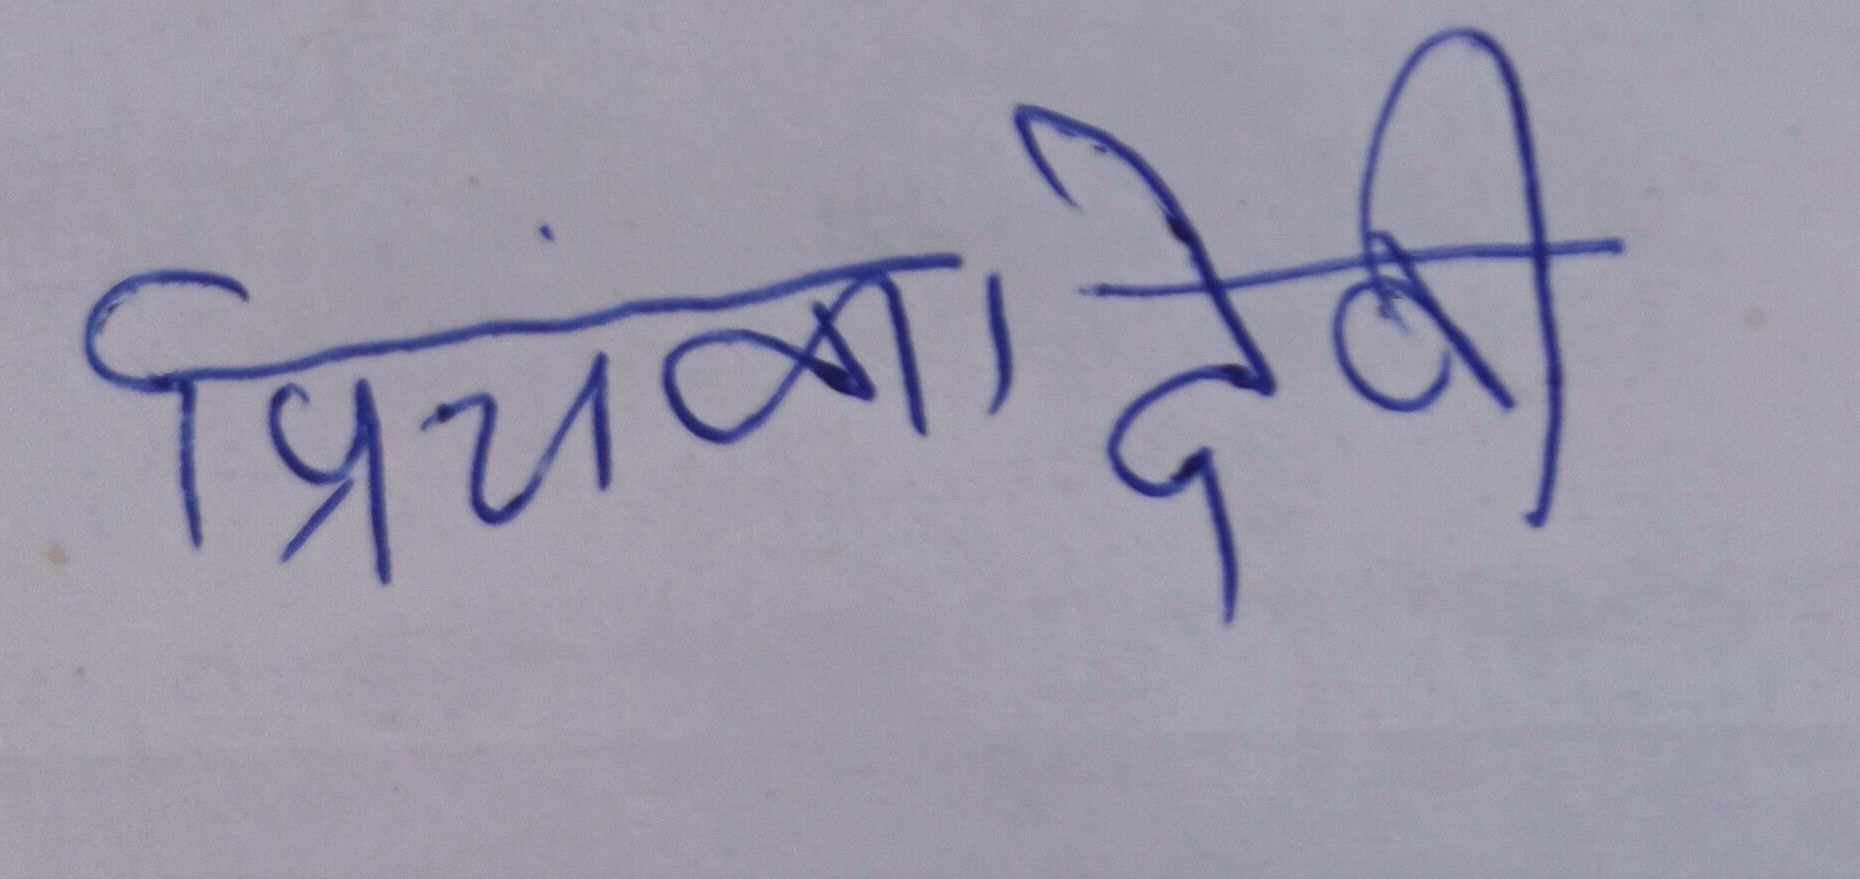 प्रियंका देवी